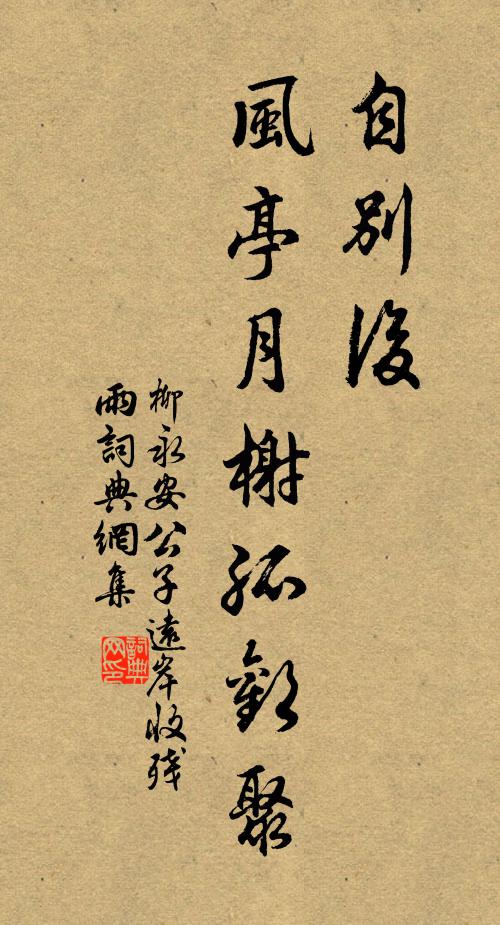 自別後
風亭月榭孤歡聚
柳永安公子遠岸收殘
雨詞典網集
詞典
网印